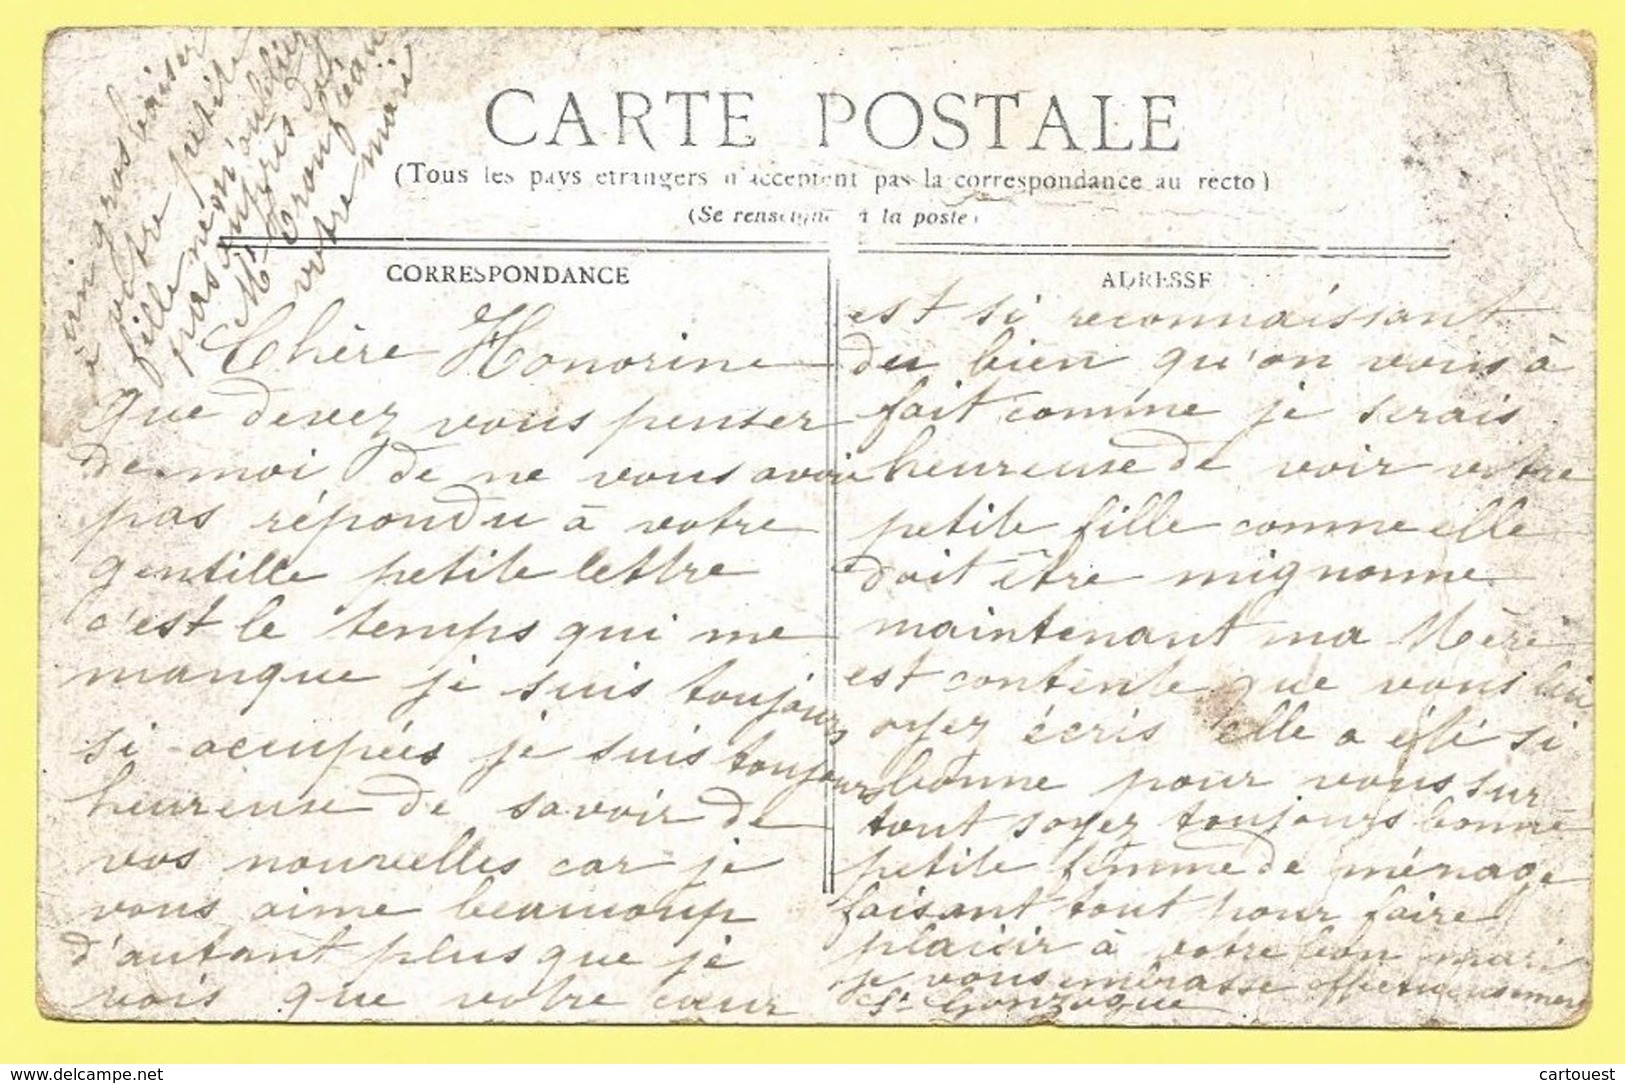 CARTE POSTALE
(Tous les pays etrangers n'acceptent pas la correspondance au recto)
(Se renseigner à la poste)
CORRESPONDANCE
Chère Honorine
que devez vous penser
de moi de ne vous avoir
pas répondu à votre
gentille petite lettre
c'est le temps qui me
manque je suis toujours
si occupées je suis toujours
heureuse de savoir de
vos nouvelles car je
vous aime beaucoup
d'autant plus que je
vois que votre cœur
ADRESSE
est si reconnaissant
du bien qu'on vous à
fait comme je serais
heureuse de voir votre
petite fille comme elle
doit être mignonne
maintenant ma Mère
est contente que vous lui
ayez écris elle a été si
bonne pour vous sur
tout soyez toujours bonne
petite femme de ménage
faisant tout pour faire
plaisir à votre bon mari
je vous embrasse affectueusement
Sr Gonzague
un gros baiser
à votre petite
fille ne m'oubliez
pas auprès de
Mr
votre mari
www.delcampe.net
cartouest